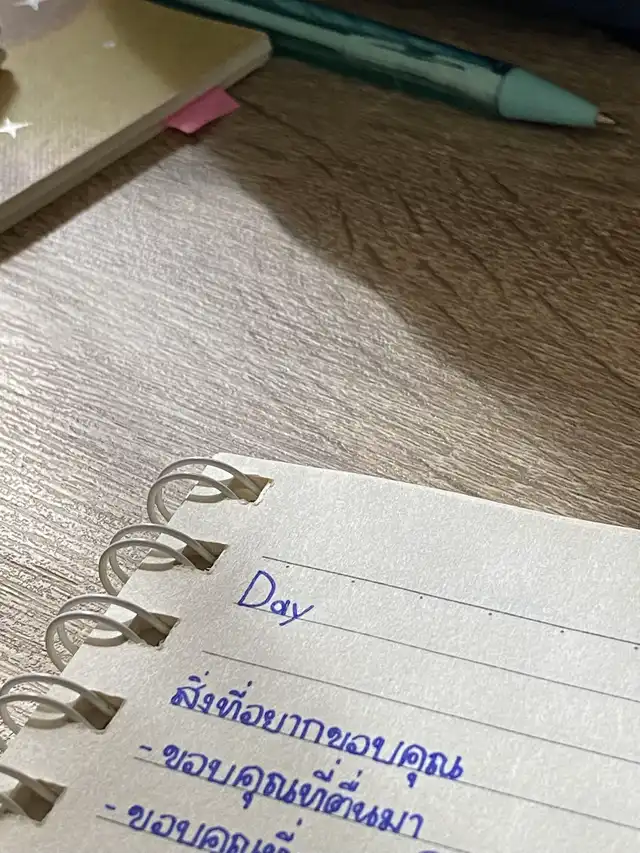 Day
สิ่งที่อยากขอบคุณ
- ขอบคุณที่ตื่นมา
- ขอบคุณที่